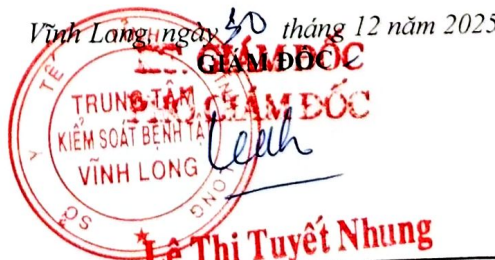 Vĩnh Long, ngày 30 tháng 12 năm 2025
GIÁM ĐỐC
PHÓ GIÁM ĐỐC
SỞ Y TẾ
TRUNG TÂM
KIỂM SOÁT BỆNH TẬT
VĨNH LONG
Lê Thị Tuyết Nhung